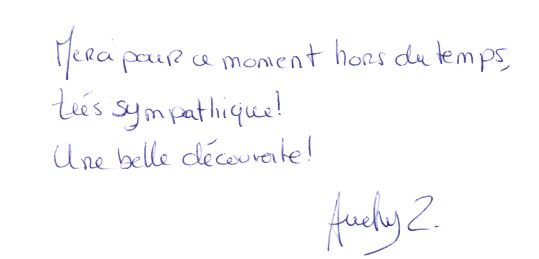 Merci pour ce moment hors du temps,
très sympathique!
Une belle découverte!
Z.